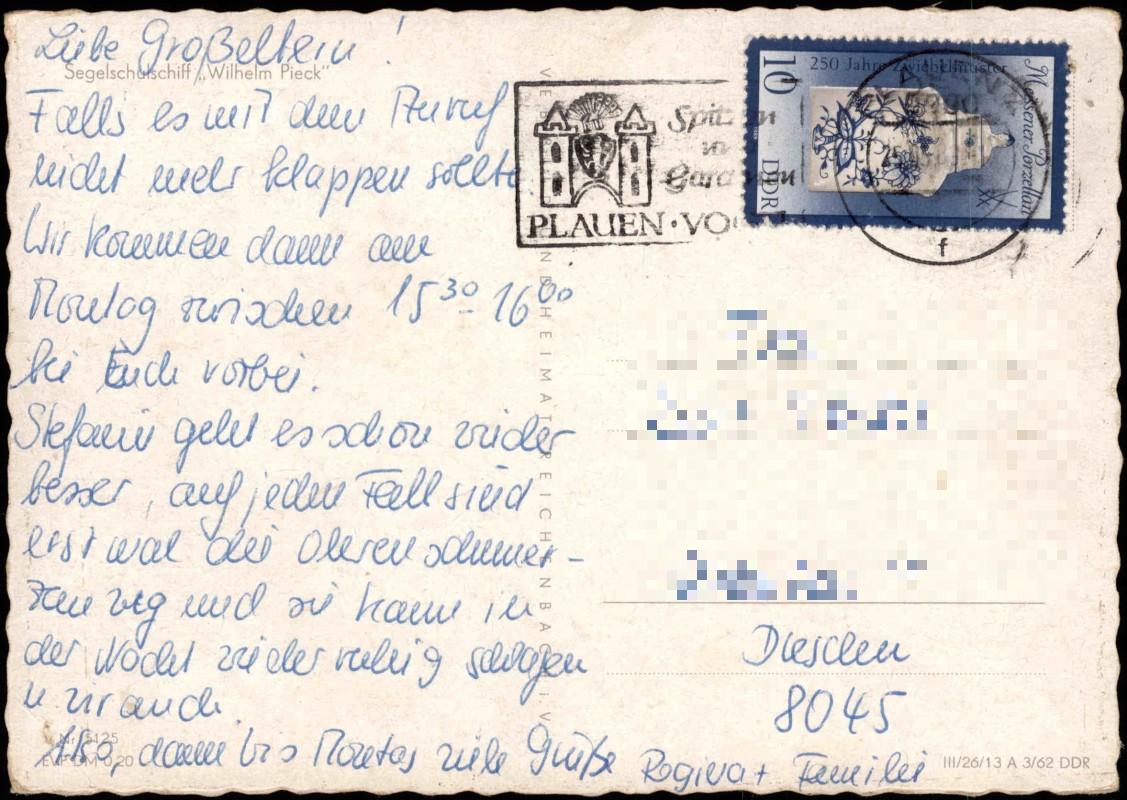 Liebe Großeltern!
Segelschulschiff „Wilhelm Pieck"
Falls es mit dem Anruf
nicht mehr klappen sollte
Wir kommen dann am
Montag zwischen 15³⁰-16⁰⁰
bei Euch vorbei.
Stefanie geht es schon wieder
besser, auf jeden Fall sind
erst mal die Ohrenschmer-
zen weg und sie kann in
der Nacht wieder ruhig schlafen
u. wir auch.
Also, dann bis Montag viele Grüße Regina + Familie
Nr. 5125
EVP DM 0,20
HEIMAT REICHENBACH I. V.
Spitzen
Gardinen
PLAUEN · VO
10
DDR
250 Jahre Zwiebelmuster
Meissener Porzellan
f
Dresden
8045
III/26/13 A 3/62 DDR